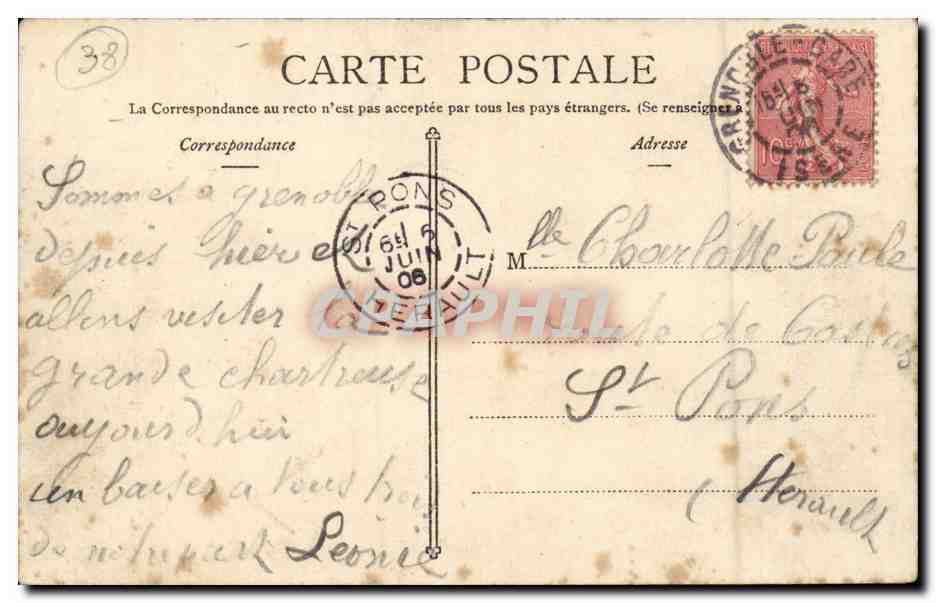 38
CARTE POSTALE
La Correspondance au recto n'est pas acceptée par tous les pays étrangers. (Se renseigner à
Correspondance
Adresse
GRENOBLE - GARE
ISERE
10
ST PONS
6
JUIN
06
HERAULT
CPAPHIL
Sommes a grenoble
depuis hier et
allons visiter la
grande chartreuse
aujourd'hui
un baiser a tous
de notre part Leonie
Mlle Charlotte Paule
route de Castres
St Pons
(Herault